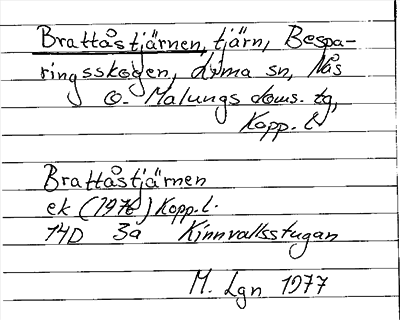 Brattåstjärnen, tjärn, Bespa-
ringsskogen, Lima sn, Nås
o. Malungs doms. tg,
Kopp. l.
Brattåstjärnen
ek (1976) Kopp.l.
14D 3a Kinnvallsstugan
M. Lgn 1977